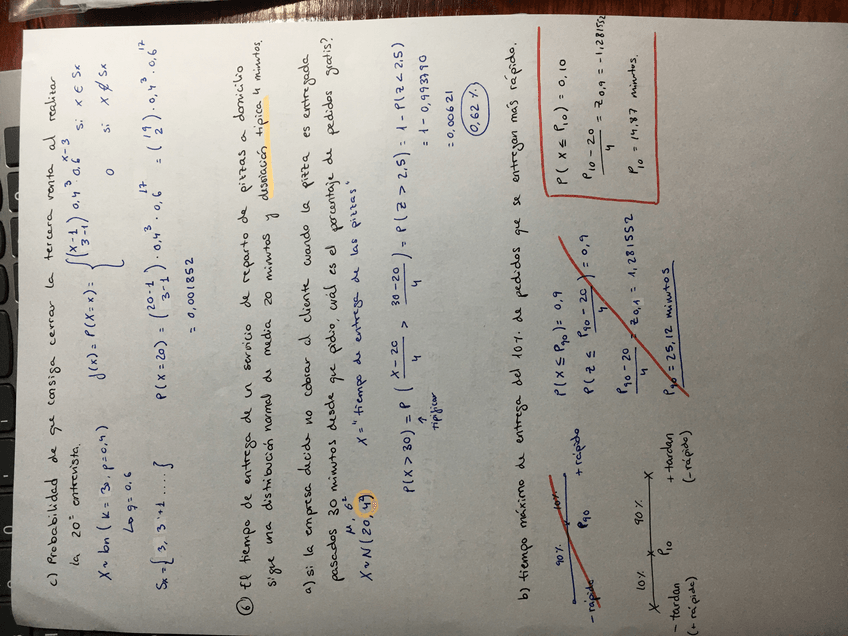 c) Probabilidad de que consiga cerrar la tercera venta al realizar
la 20ª entrevista.
X ~ bn (k = 30, p=0,4)
↳ q=0,6
f(x) = P(X=x) = { (x-1 / 3-1) 0,4³ 0,6^(x-3) si x ∈ Sx
0 si x ∉ Sx
Sx = { 3, 3+1 .... }
P(X=20) = (20-1 / 3-1) · 0,4³ · 0,6^17 = (19 / 2) · 0,4³ · 0,6^17
= 0,001852
⑥ El tiempo de entrega de un servicio de reparto de pizzas a domicilio
sigue una distribución normal de media 20 minutos y desviación típica 4 minutos.
a) si la empresa decide no cobrar al cliente cuando la pizza es entregada
pasados 30 minutos desde que pidio, cuál es el porcentaje de pedidos gratis?
μ, σ²
X ~ N(20, 4²)
X = "tiempo de entrega de las pizzas"
P(X > 30) = P( (X-20)/4 > (30-20)/4 ) = P(Z > 2,5) = 1 - P(Z < 2,5)
↑
tipificar
= 1 - 0,993790
= 0,00621
0,62 %
b) tiempo máximo de entrega del 10% de pedidos que se entregan más rápido.
90% 10%
- rápido P90 + rápido
10% 90%
P10
- tardan + tardan
(+ rápido) (- rápido)
P(X ≤ P90) = 0,9
P(Z ≤ (P90 - 20)/4 ) = 0,9
(P90 - 20)/4 = Z0,1 = 1,281552
P90 = 25,12 minutos
P(X ≤ P10) = 0,10
(P10 - 20)/4 = Z0,9 = -1,281552
P10 = 14,87 minutos.